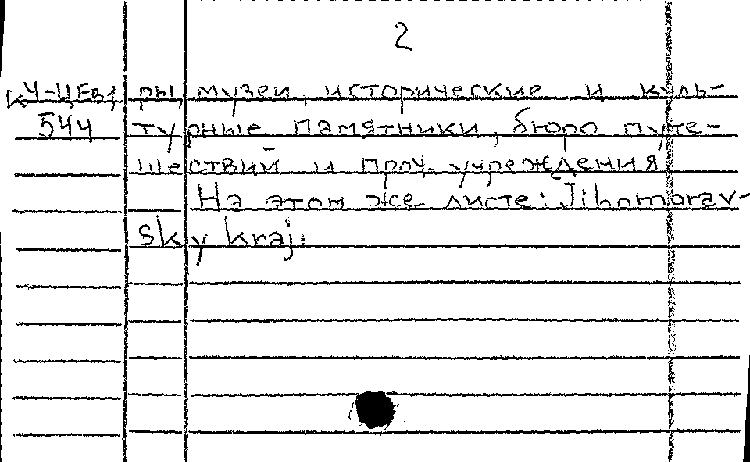 2
К4-ЦЕв1 ры, музеи, исторические и куль-
544 турные памятники, бюро путе-
шествий и проч. учреждения
На этом же листе: Jihomorav-
sky kraj.